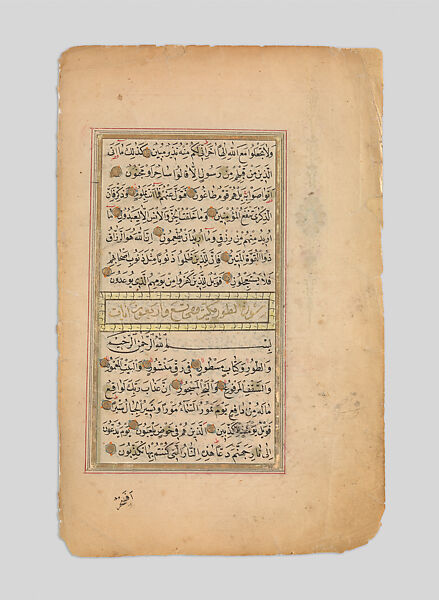 وَلَا تَجْعَلُوا مَعَ اللّٰهِ اِلٰهًا اٰخَرَ اِنِّي لَكُمْ مِنْهُ نَذِيرٌ مُبِينٌ كَذٰلِكَ مَا اَتَى
الَّذِينَ مِنْ قَبْلِهِمْ مِنْ رَسُولٍ اِلَّا قَالُوا سَاحِرٌ اَوْ مَجْنُونٌ
اَتَوَاصَوْا بِهِ بَلْ هُمْ قَوْمٌ طَاغُونَ فَتَوَلَّ عَنْهُمْ فَمَا اَنْتَ بِمَلُومٍ وَذَكِّرْ فَاِنَّ
الذِّكْرٰى تَنْفَعُ الْمُؤْمِنِينَ وَمَا خَلَقْتُ الْجِنَّ وَالْاِنْسَ اِلَّا لِيَعْبُدُونِ مَا
اُرِيدُ مِنْهُمْ مِنْ رِزْقٍ وَمَا اُرِيدُ اَنْ يُطْعِمُونِ اِنَّ اللّٰهَ هُوَ الرَّزَّاقُ
ذُو الْقُوَّةِ الْمَتِينُ فَاِنَّ لِلَّذِينَ ظَلَمُوا ذَنُوبًا مِثْلَ ذَنُوبِ اَصْحَابِهِمْ
فَلَا يَسْتَعْجِلُونِ فَوَيْلٌ لِلَّذِينَ كَفَرُوا مِنْ يَوْمِهِمُ الَّذِي يُوعَدُونَ
سورة الطور مكية وهي تسع واربعون ايات
بِسْمِ اللّٰهِ الرَّحْمٰنِ الرَّحِيمِ
وَالطُّورِ وَكِتَابٍ مَسْطُورٍ فِي رَقٍّ مَنْشُورٍ وَالْبَيْتِ الْمَعْمُورِ
وَالسَّقْفِ الْمَرْفُوعِ وَالْبَحْرِ الْمَسْجُورِ اِنَّ عَذَابَ رَبِّكَ لَوَاقِعٌ
مَا لَهُ مِنْ دَافِعٍ يَوْمَ تَمُورُ السَّمَاءُ مَوْرًا وَتَسِيرُ الْجِبَالُ سَيْرًا
فَوَيْلٌ يَوْمَئِذٍ لِلْمُكَذِّبِينَ الَّذِينَ هُمْ فِي خَوْضٍ يَلْعَبُونَ يَوْمَ يُدَعُّونَ
اِلٰى نَارِ جَهَنَّمَ دَعًّا هٰذِهِ النَّارُ الَّتِي كُنْتُمْ بِهَا تُكَذِّبُونَ
افسحر